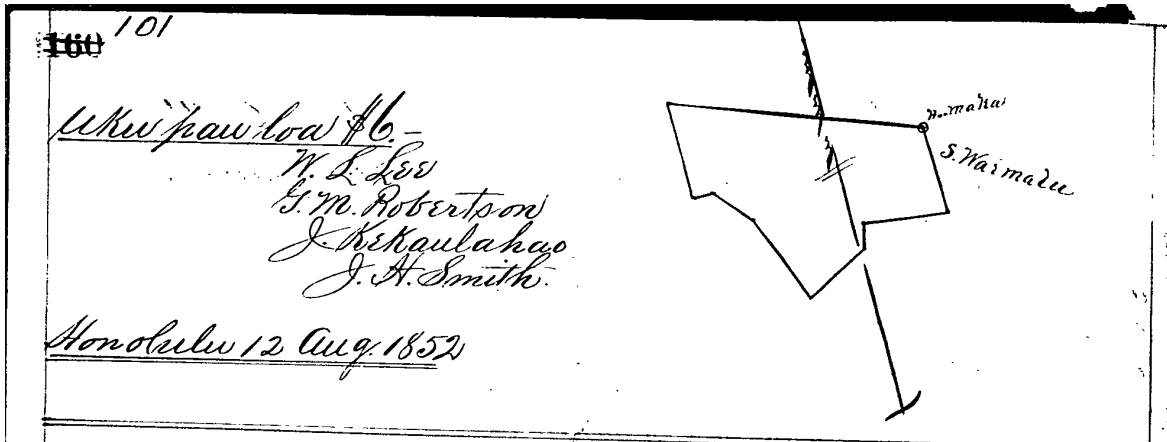 101
160
Uku pau loa $6.-
W. L. Lee
G. M. Robertson
J. Kekaulahao
J. H. Smith.
Honolulu 12 Aug. 1852
S. Waimalu